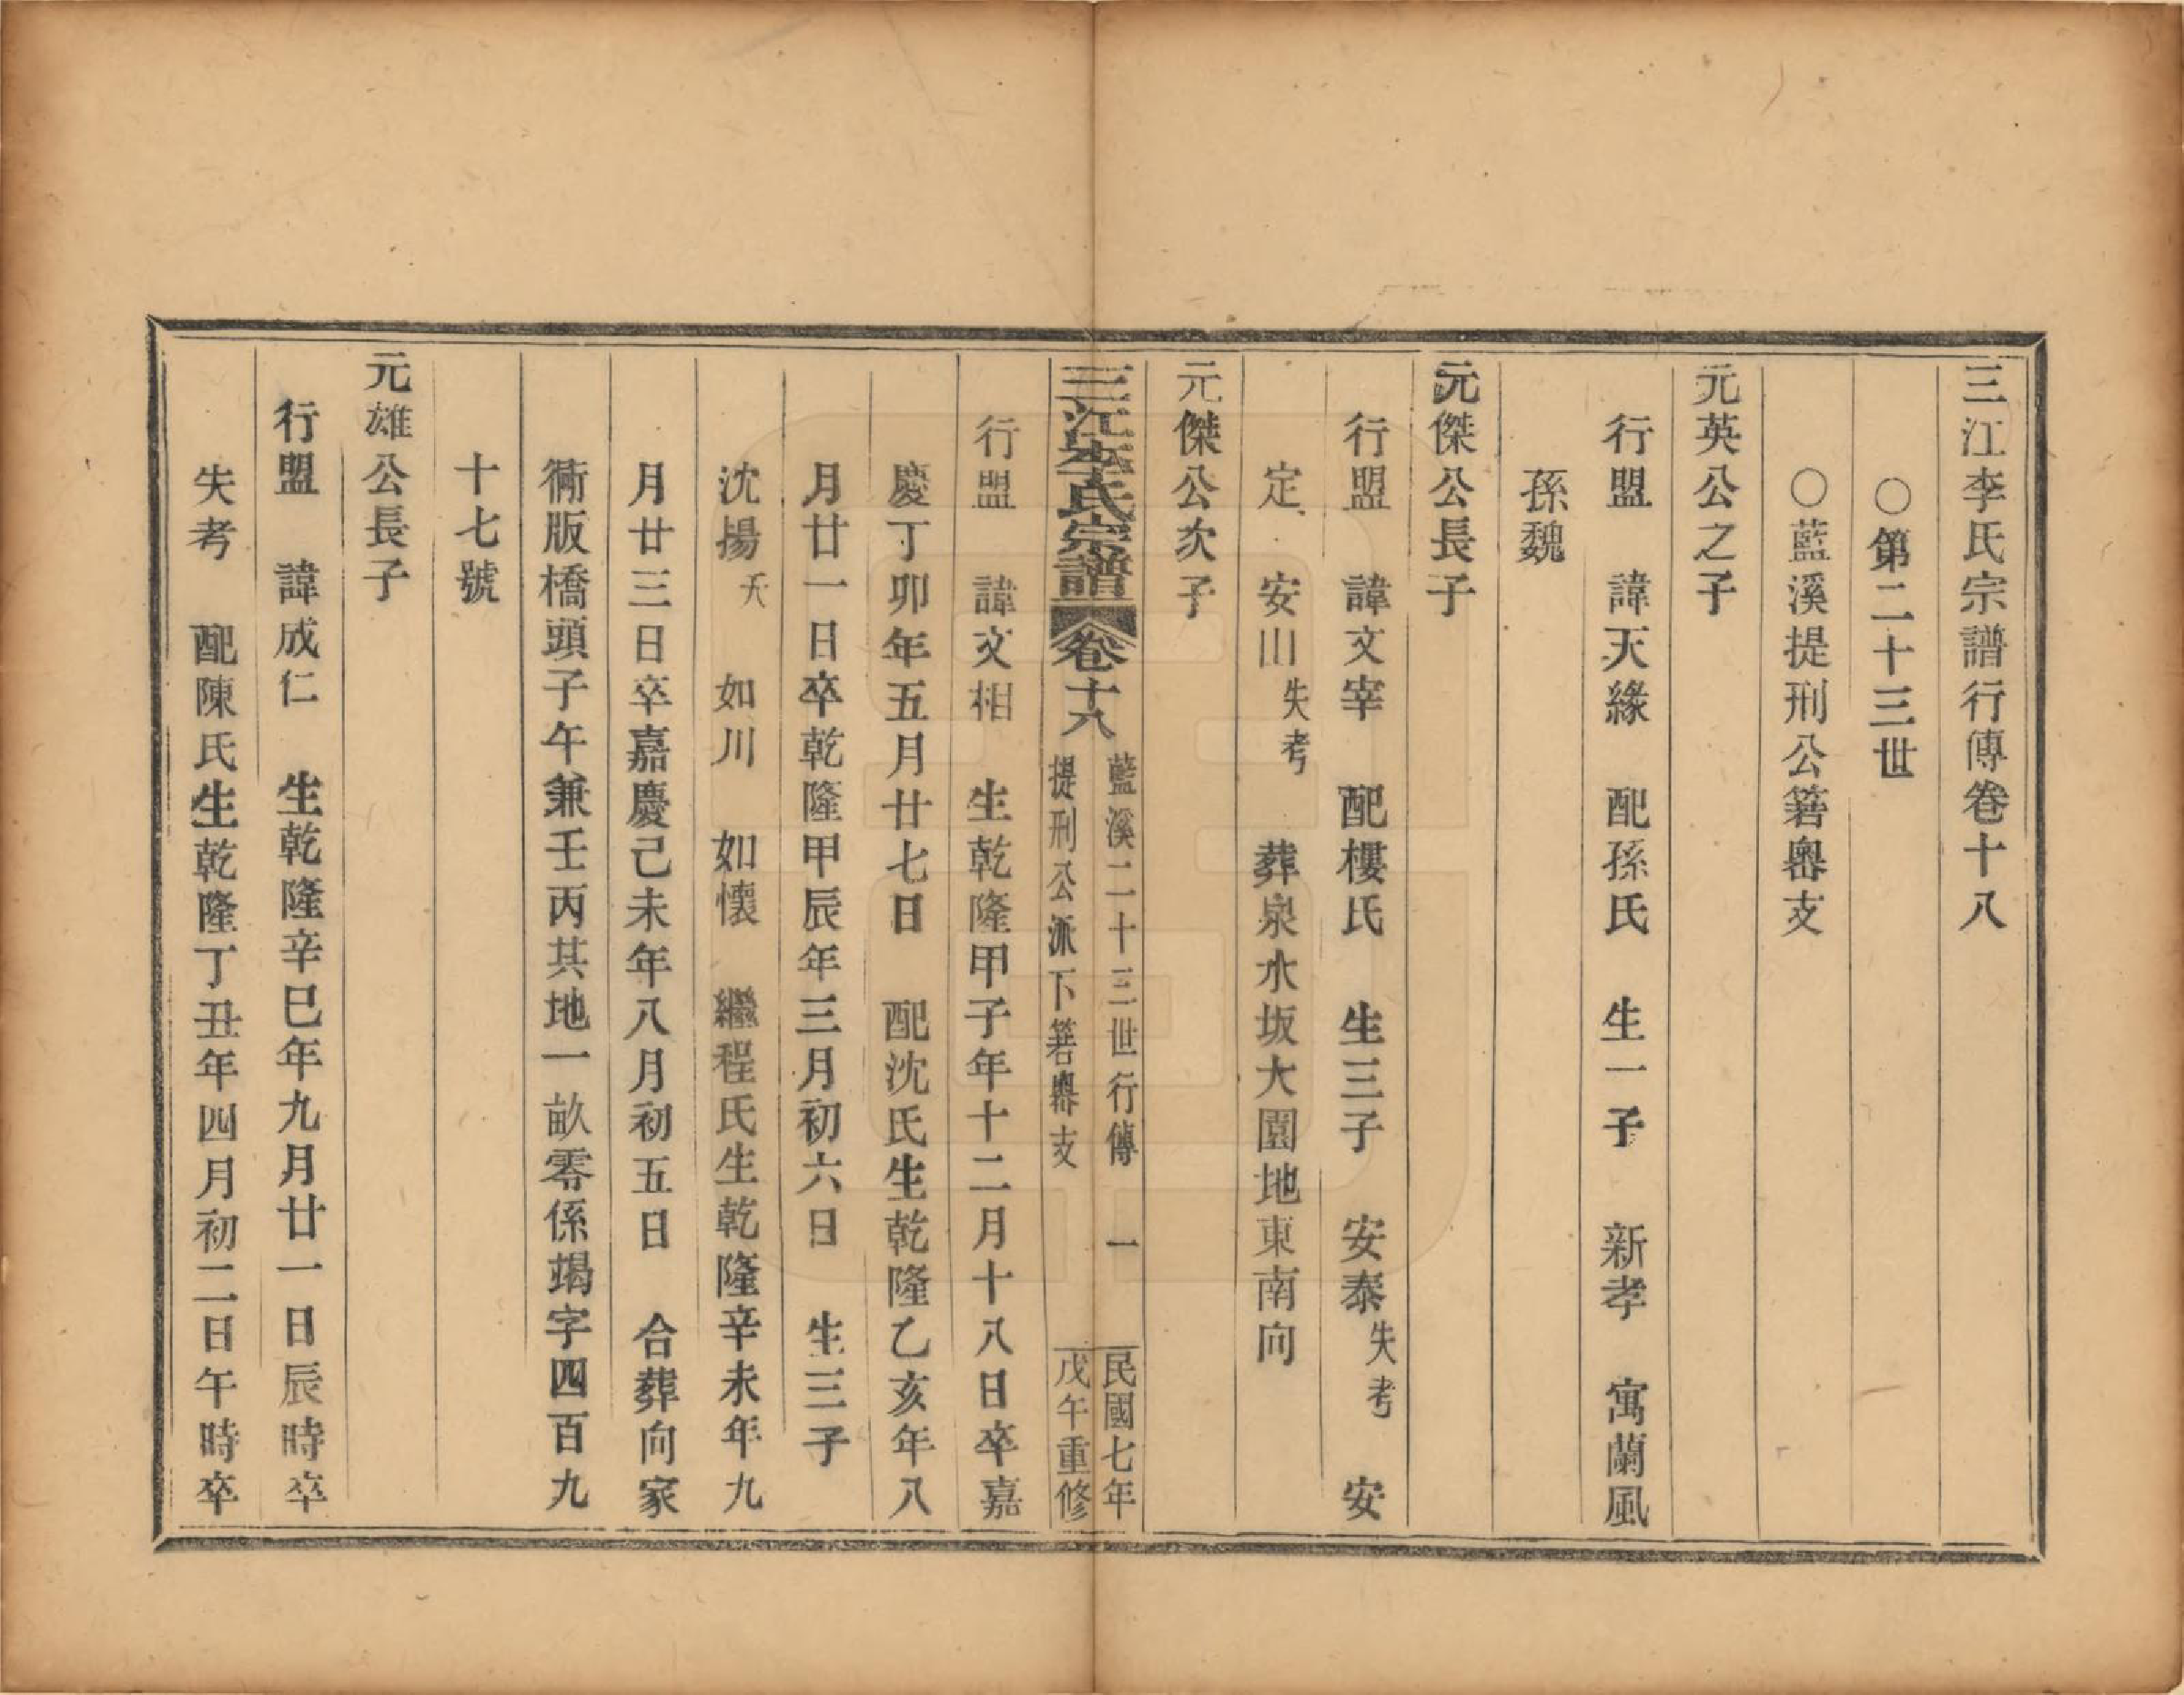 三江李氏宗譜行傳卷十八
○第二十三世
○藍溪提刑公箬嶴支
元英公之子
行盟 諱天緣 配孫氏 生一子 新孝 寓蘭風
孫魏
元傑公長子
行盟 諱文宰 配樓氏 生三子 安泰失考 安
定 安川失考 葬泉水坂大園地東南向
元傑公次子
三江李氏宗譜 卷十八 藍溪二十三世行傳 一 民國七年
提刑公派下箬嶴支 戊午重修
行盟 諱文相 生乾隆甲子年十二月十八日卒嘉
慶丁卯年五月廿七日 配沈氏生乾隆乙亥年八
月廿一日卒乾隆甲辰年三月初六日 生三子
沈揚夭 如川 如懷 繼程氏生乾隆辛未年九
月廿三日卒嘉慶己未年八月初五日 合葬向家
衕版橋頭子午兼壬丙其地一畝零係竭字四百九
十七號
元雄公長子
行盟 諱成仁 生乾隆辛巳年九月廿一日辰時卒
失考 配陳氏生乾隆丁丑年四月初二日午時卒